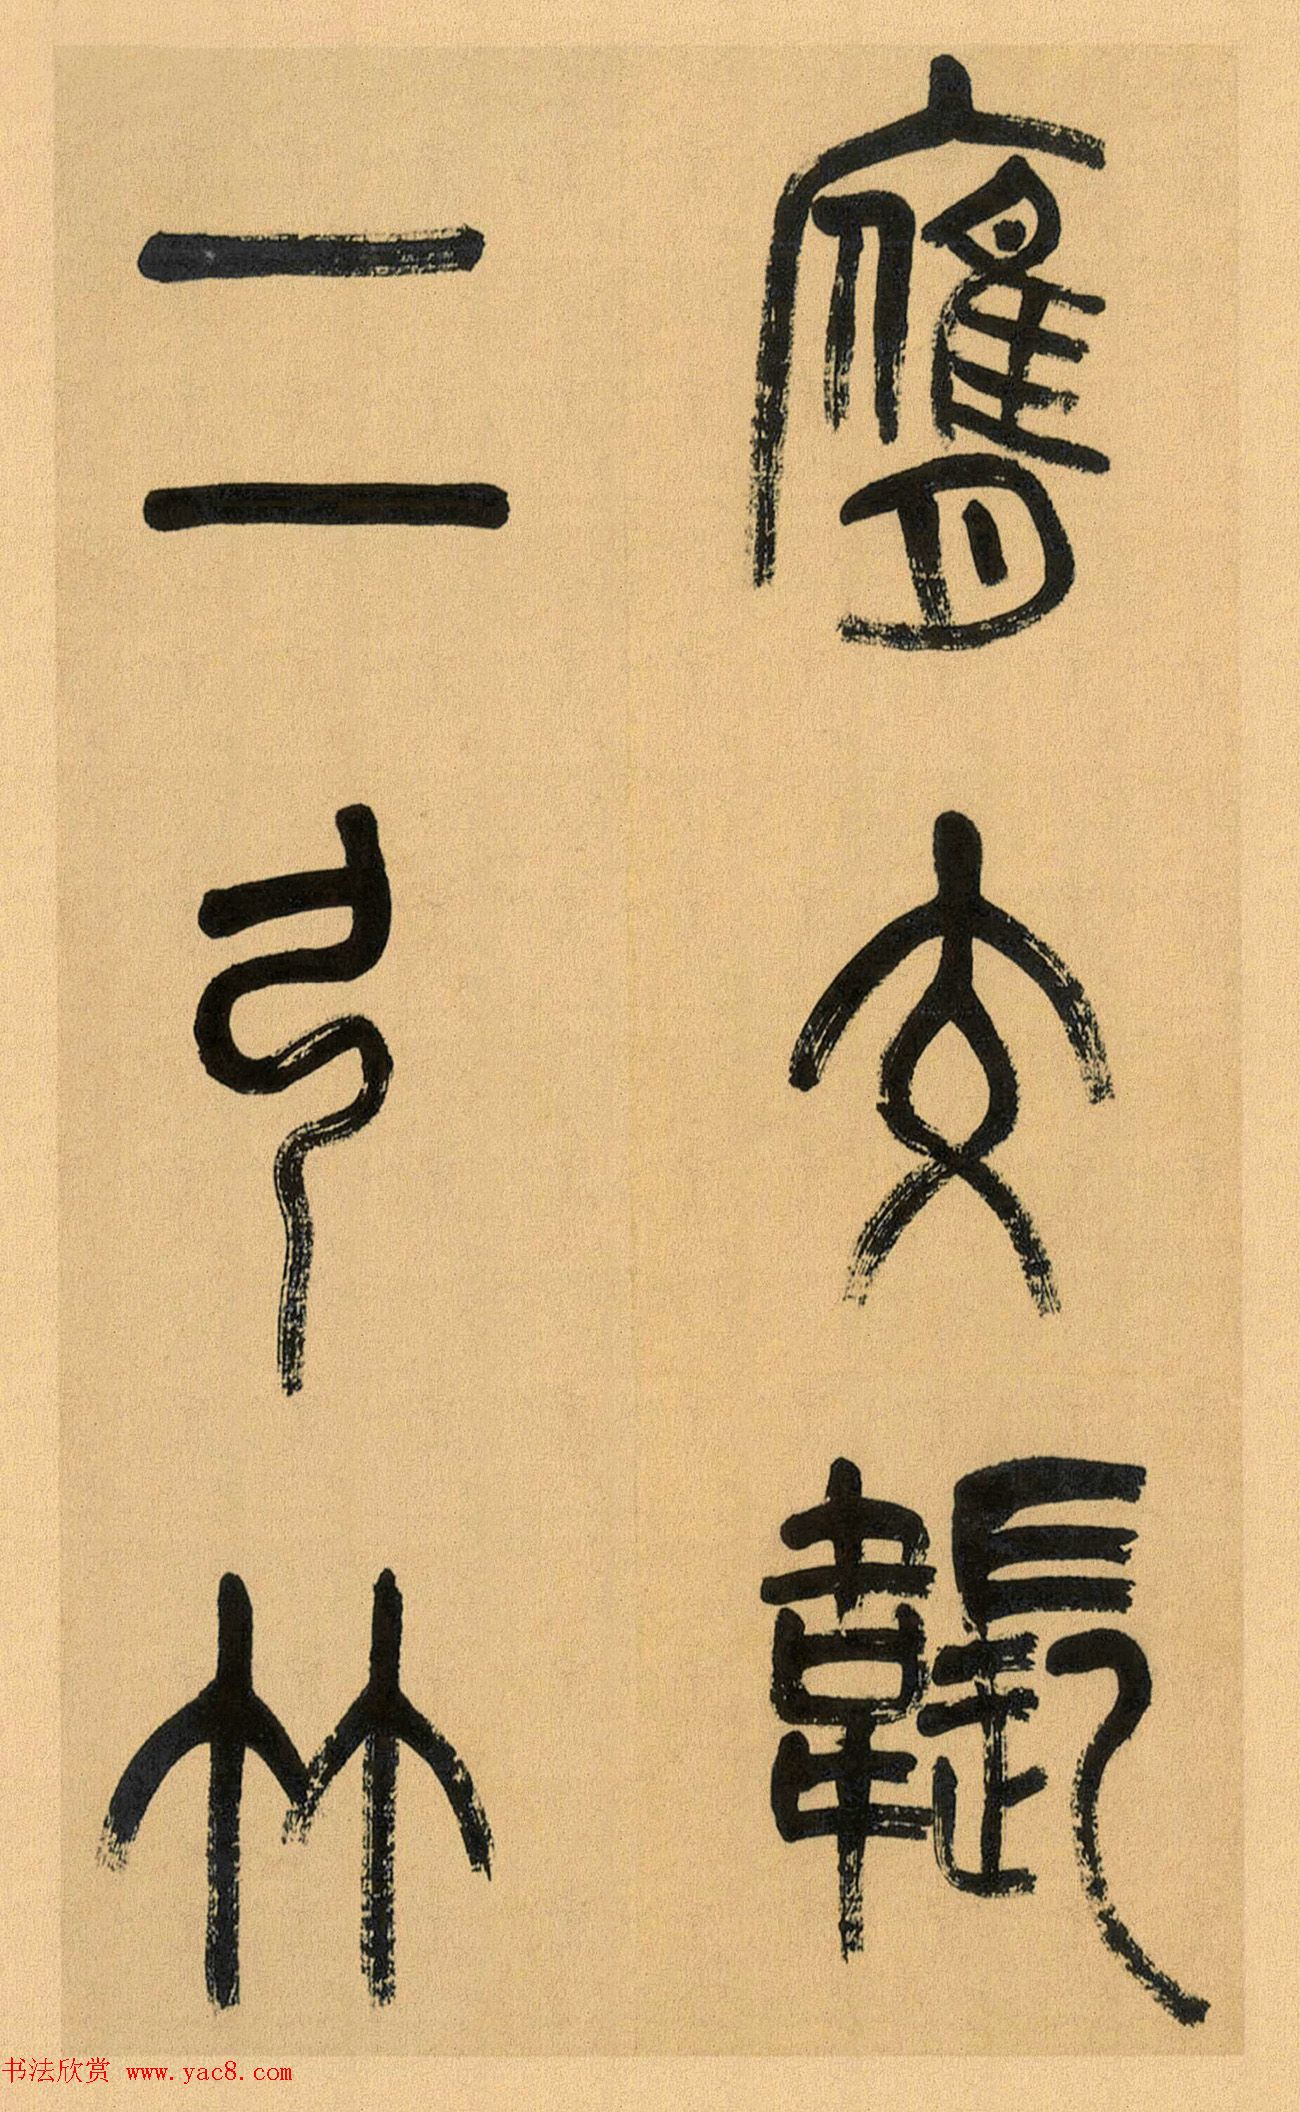 膺交韔
二弓竹
书法欣赏 www.yac8.com